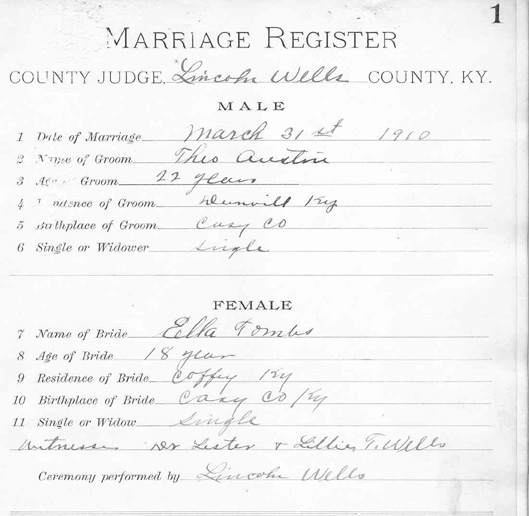 1
MARRIAGE REGISTER
COUNTY JUDGE, Lincoln Wells COUNTY, KY.
MALE
1 Date of Marriage March 31st 1910
2 Name of Groom Theo Austin
3 Age of Groom 22 years
4 Residence of Groom Dunvill Ky
5 Birthplace of Groom Casy Co
6 Single or Widower Single
FEMALE
7 Name of Bride Ella Tombs
8 Age of Bride 18 year
9 Residence of Bride Coffey Ky
10 Birthplace of Bride Casy Co Ky
11 Single or Widow Single
Witnesses Dr Lester & Lillie T. Wells
Ceremony performed by Lincoln Wells